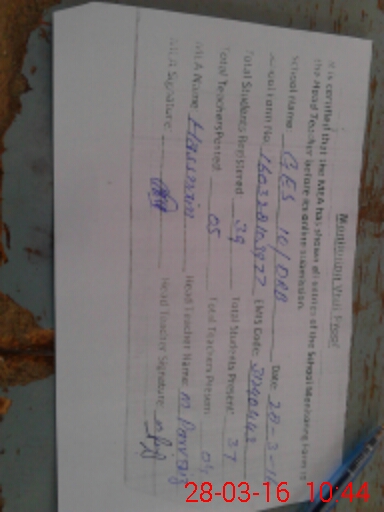 Monitoring Visit Proof
It is certified that the MEA has shown all entries of the School Monitoring Form to
the Head Teacher before its online submission
School Name GES 10/DRB Date 28-3-16
School Form No. EMIS Code:
Total Students Registered 39 Total Students Present: 37
Total Teachers Posted 05 Total Teachers Present: 04
MEA Name Hasnain Head Teacher Name: M Parvaiz
MEA Signature Head Teacher Signature
28-03-16 10:44